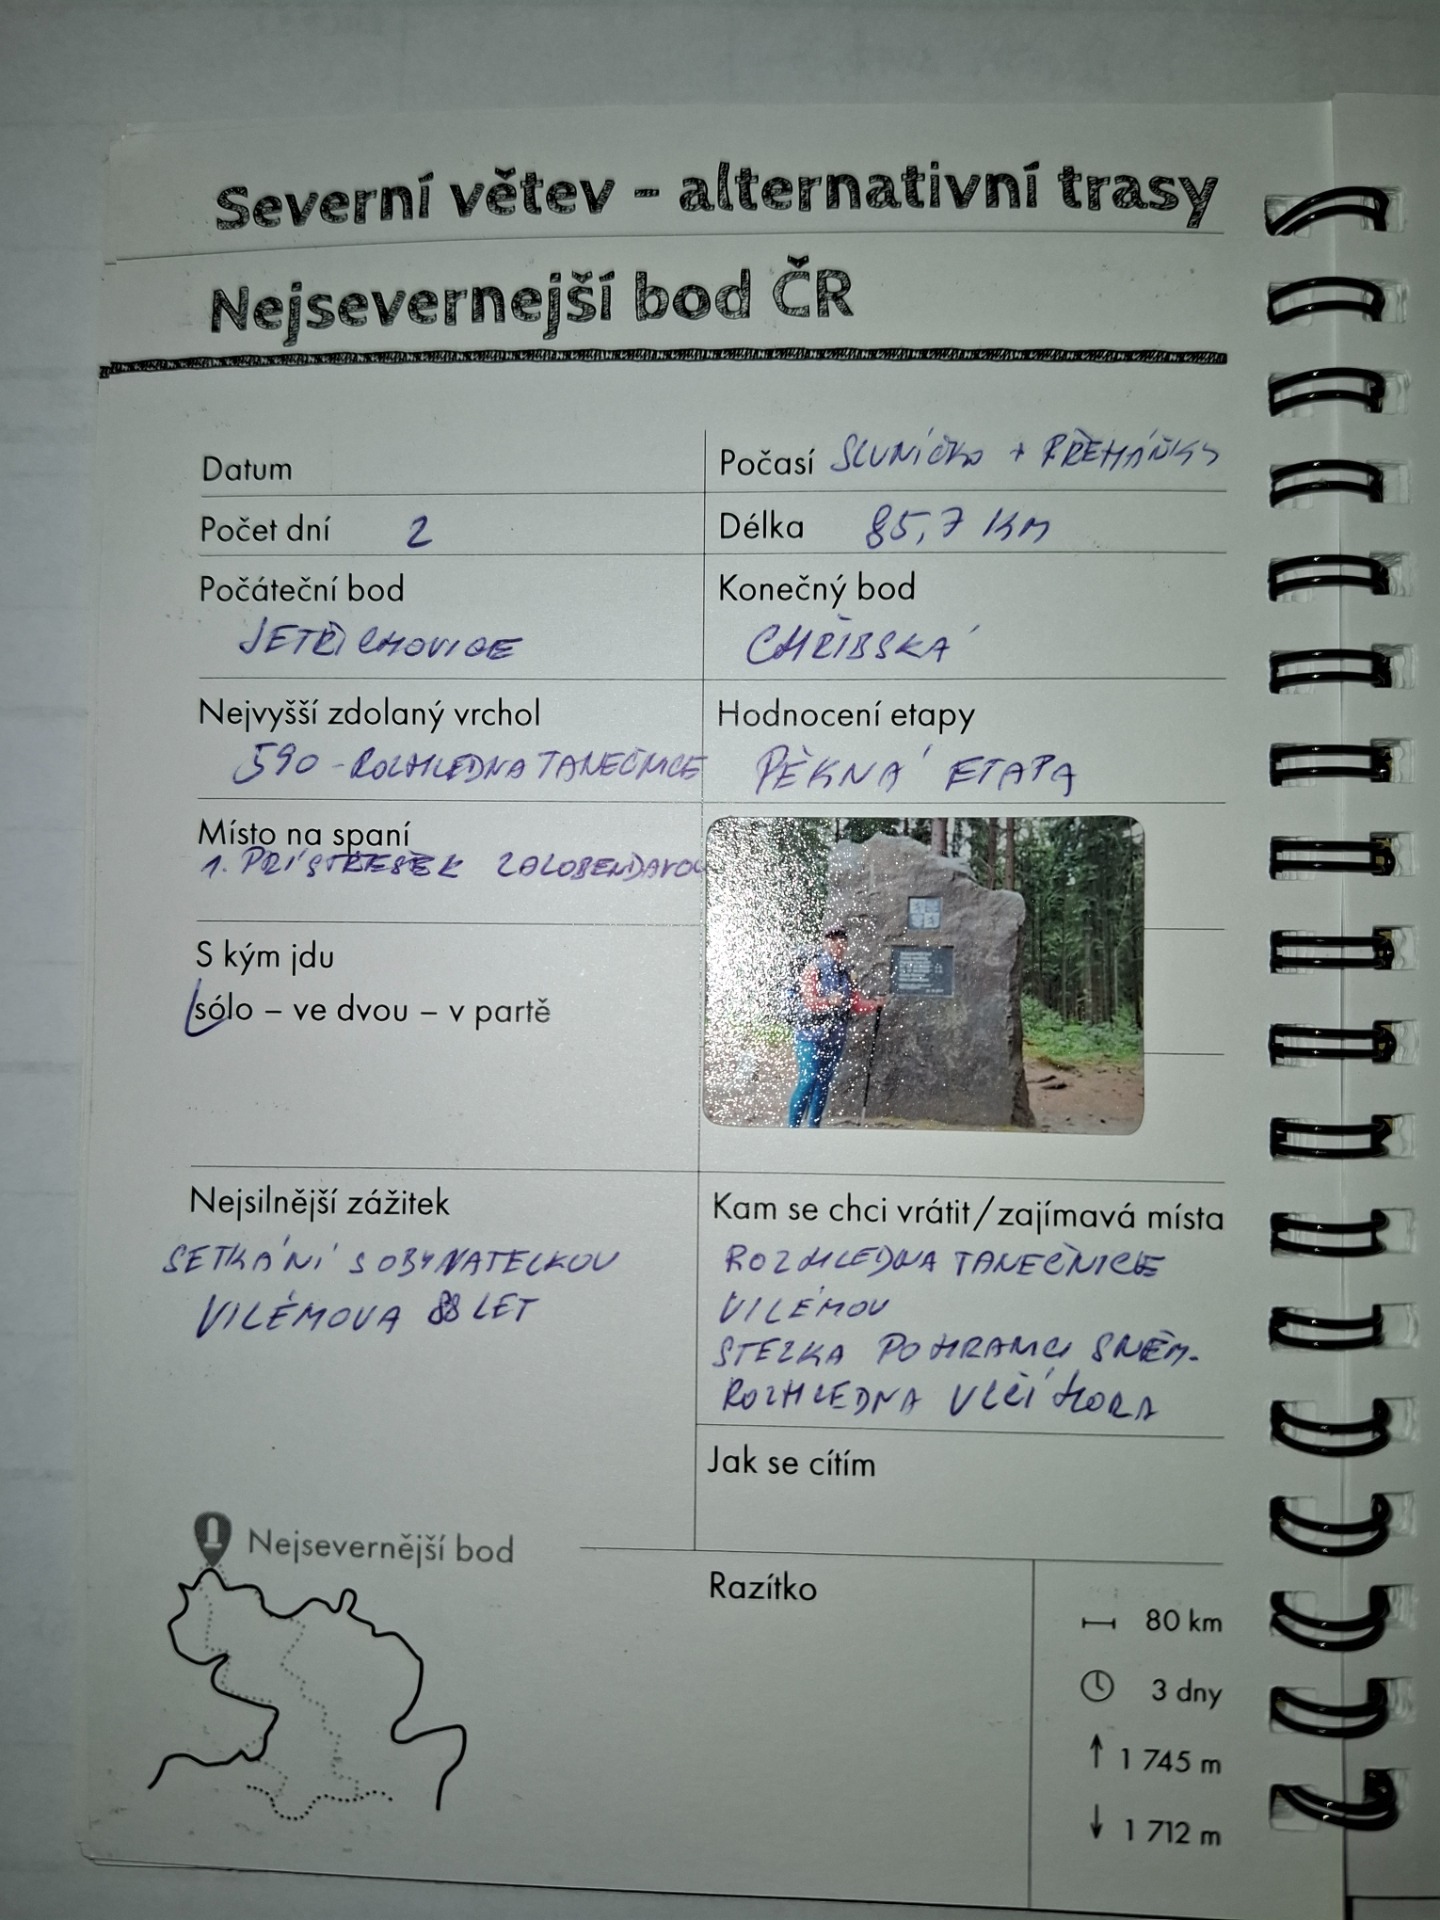 Severní větev – alternativní trasy
Nejsevernejší bod ČR
Datum
Počasí SLUNÍČKO + PŘEHÁŇKY
Počet dní 2
Délka 85,7 KM
Počáteční bod
JETŘICHOVICE
Konečný bod
CHŘIBSKÁ
Nejvyšší zdolaný vrchol
590 - ROZHLEDNA TANEČNICE
Hodnocení etapy
PĚKNÁ ETAPA
Místo na spaní
1. PŘÍSTŘEŠEK ZALOBENDAVOU
S kým jdu
sólo – ve dvou – v partě
Nejsilnější zážitek
SETKÁNÍ S OBYVATELKOU
VILÉMOVA 88 LET
Kam se chci vrátit/zajímavá místa
ROZHLEDNA TANEČNICE
VILÉMOV
STEZKA PO HRANICI S NĚM.
ROZHLEDNA VLČÍ HORA
Jak se cítím
Nejsevernější bod
Razítko
80 km
3 dny
1 745 m
1 712 m